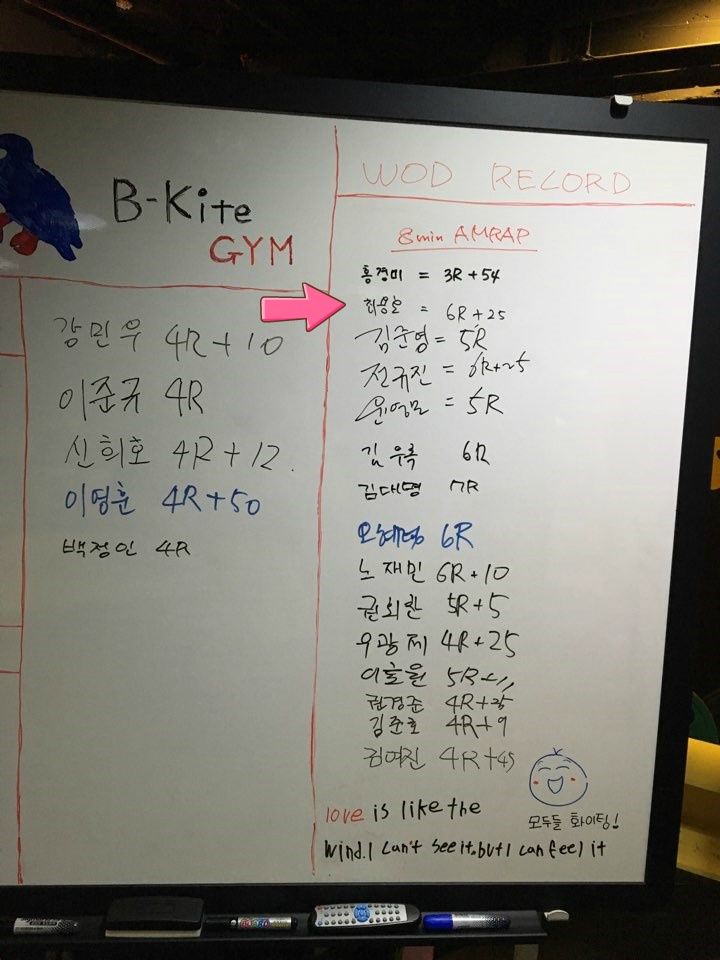 B-Kite
GYM
강민우 4R+10
이준규 4R
신희호 4R+12.
이영훈 4R+50
백정인 4R
WOD RECORD
8min AMRAP
홍경미 = 3R+54
최용호 = 6R+25
김준영 = 5R
전규진 = 6R+25
= 5R
김우록 6R
김대명 7R
6R
노재민 6R+10
권회란 5R+5
우광제 4R+25
이호원 5R
권경준 4R+25
김준호 4R+9
김여진 4R+45
모두들 화이팅!
love is like the
wind. I can't see it. but I can feel it